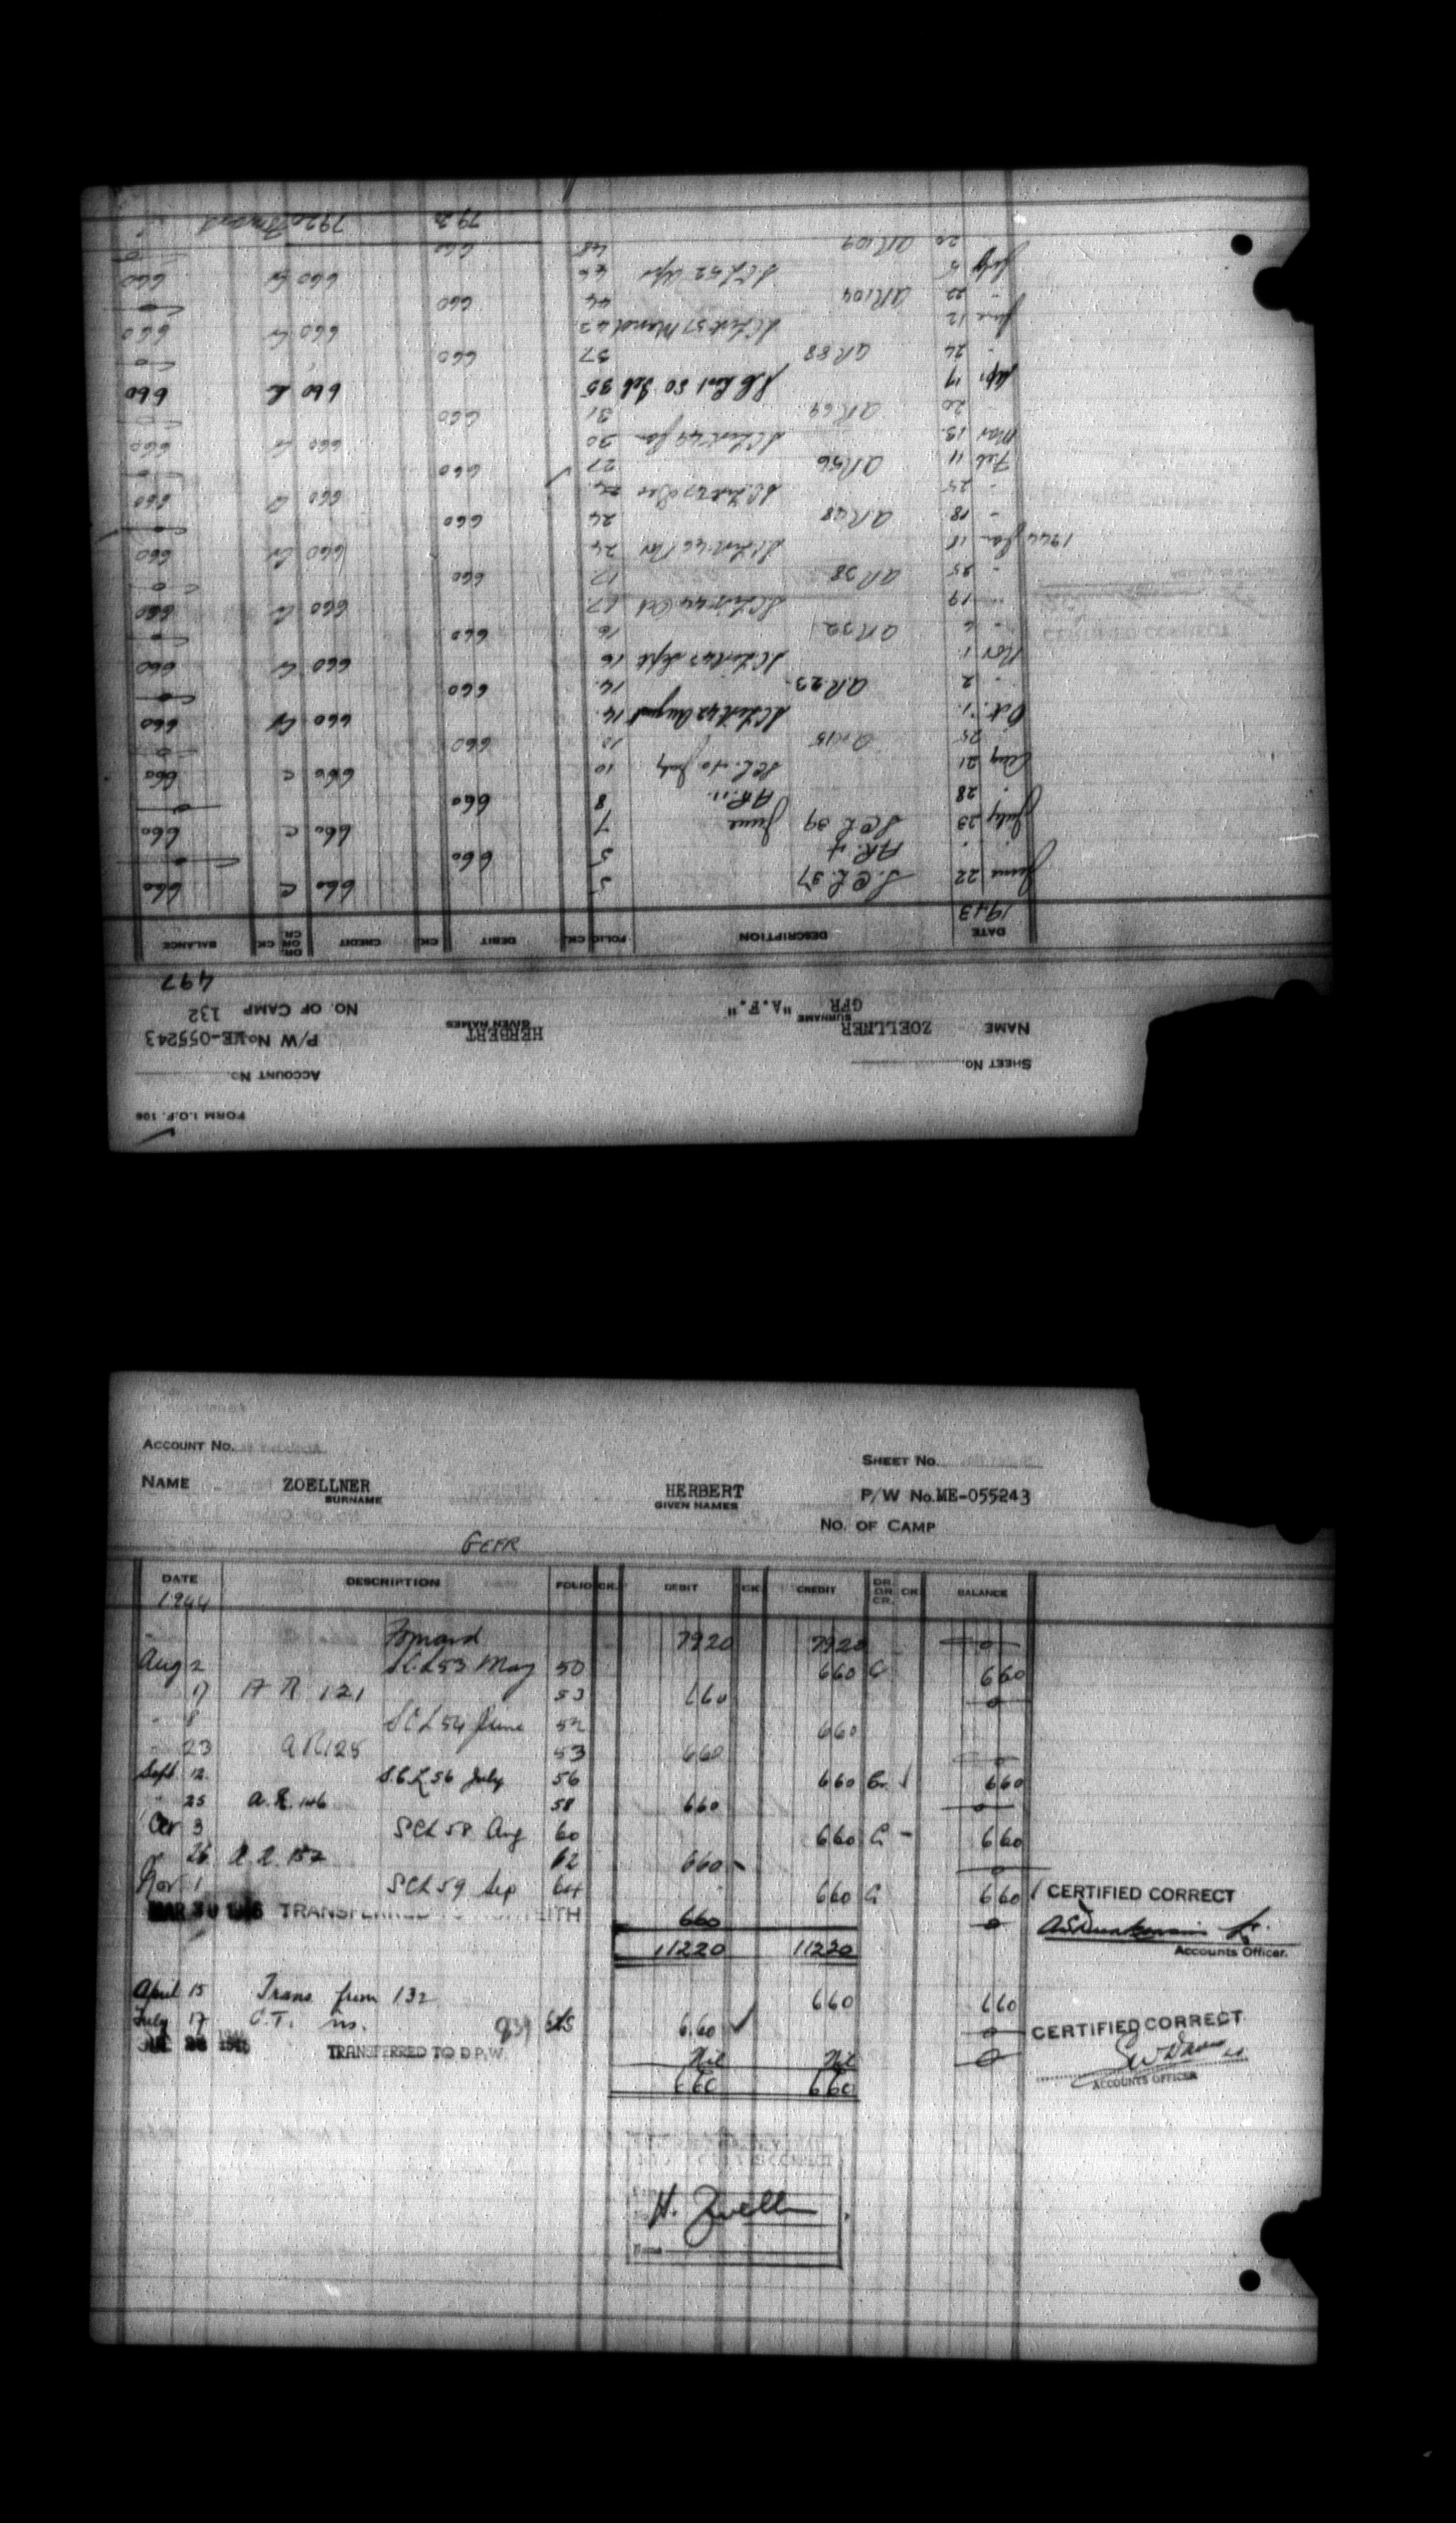 FORM I.O.F. 106
ACCOUNT No.
SHEET No.
P/W No. ME-055243
NAME ZOELLNER HERBERT
SURNAME GIVEN NAMES
GFR "A.F." NO. OF CAMP 132
497
DATE DESCRIPTION FOLIO CK. DEBIT CK. CREDIT DR. OR CR. CK BALANCE
1943
June 22 S.C.L. 37 5 660 C 660
" " A.R. 4 5 660 0
July 23 S.C.L 39 June 7 660 C 660
" 28 A.R. 11 8 660 0
Aug 21 S.C.L. 40 July 10 660 C 660
25 AR15 10 660 0
Oct. 1. SCList 42 August 14 660 Cr 660
" 2 A.R. 23 14 660 0
Nov 1 SCList 43 Sept 16 660 Cr 660
" 6 AR 32 16 660 0
" 19 SCList 44 Oct 17 660 Cr 660
" 25 AR 38 17 660 0
1944 Jan 18 SCList 46 Nov 24 660 Cr 660
" 18 AR48 24 660 0
" 25 SCList 47 Dec 660 Cr 660
Feb 11 AR56 27 660 0
Mar 13 SCList 49 Jan 30 660 Cr 660
20 AR 69 31 660 0
Apr 17 S.C. List 50 Feb 35 660 660
" 24 AR 88 37 660 0
June 12 SCList 51 March 43 660 Cr 660
" 22 AR104 44 660 0
July 5 SCL 52 Apr 46 660 Cr 660
" 20 AR 109 48 660 0
7920 7920 Forward
ACCOUNT No.
SHEET No.
NAME ZOELLNER HERBERT P/W No. ME-055243
SURNAME GIVEN NAMES
NO. OF CAMP
GEFR
DATE DESCRIPTION FOLIO CK. DEBIT CK. CREDIT DR. OR CR. CK. BALANCE
1944
Forward 7920 7920 0
Aug 2 S.C.L 53 May 50 660 C 660
17 A R 121 53 660 0
" 8 SCL 54 June 52 660
" 23 AR125 53 660 0
Sept 12 S.C.L 56 July 56 660 Cr 660
" 25 A.R. 146 58 660 0
Oct 3 SCL 58 Aug 60 660 C 660
" 26 A.R. 157 62 660 0
Nov 1 SCL 59 Sep 64 660 C 660
CERTIFIED CORRECT
MAR 30 TRANSFERRED TO 660 0
Accounts Officer.
11220 11220
April 15 Trans from 132 660 660
July 17 C.T. 660 0
CERTIFIED CORRECT
TRANSFERRED TO D.P.W. Nil Nil 0
ACCOUNTS OFFICER
660 660
H. Zoelln